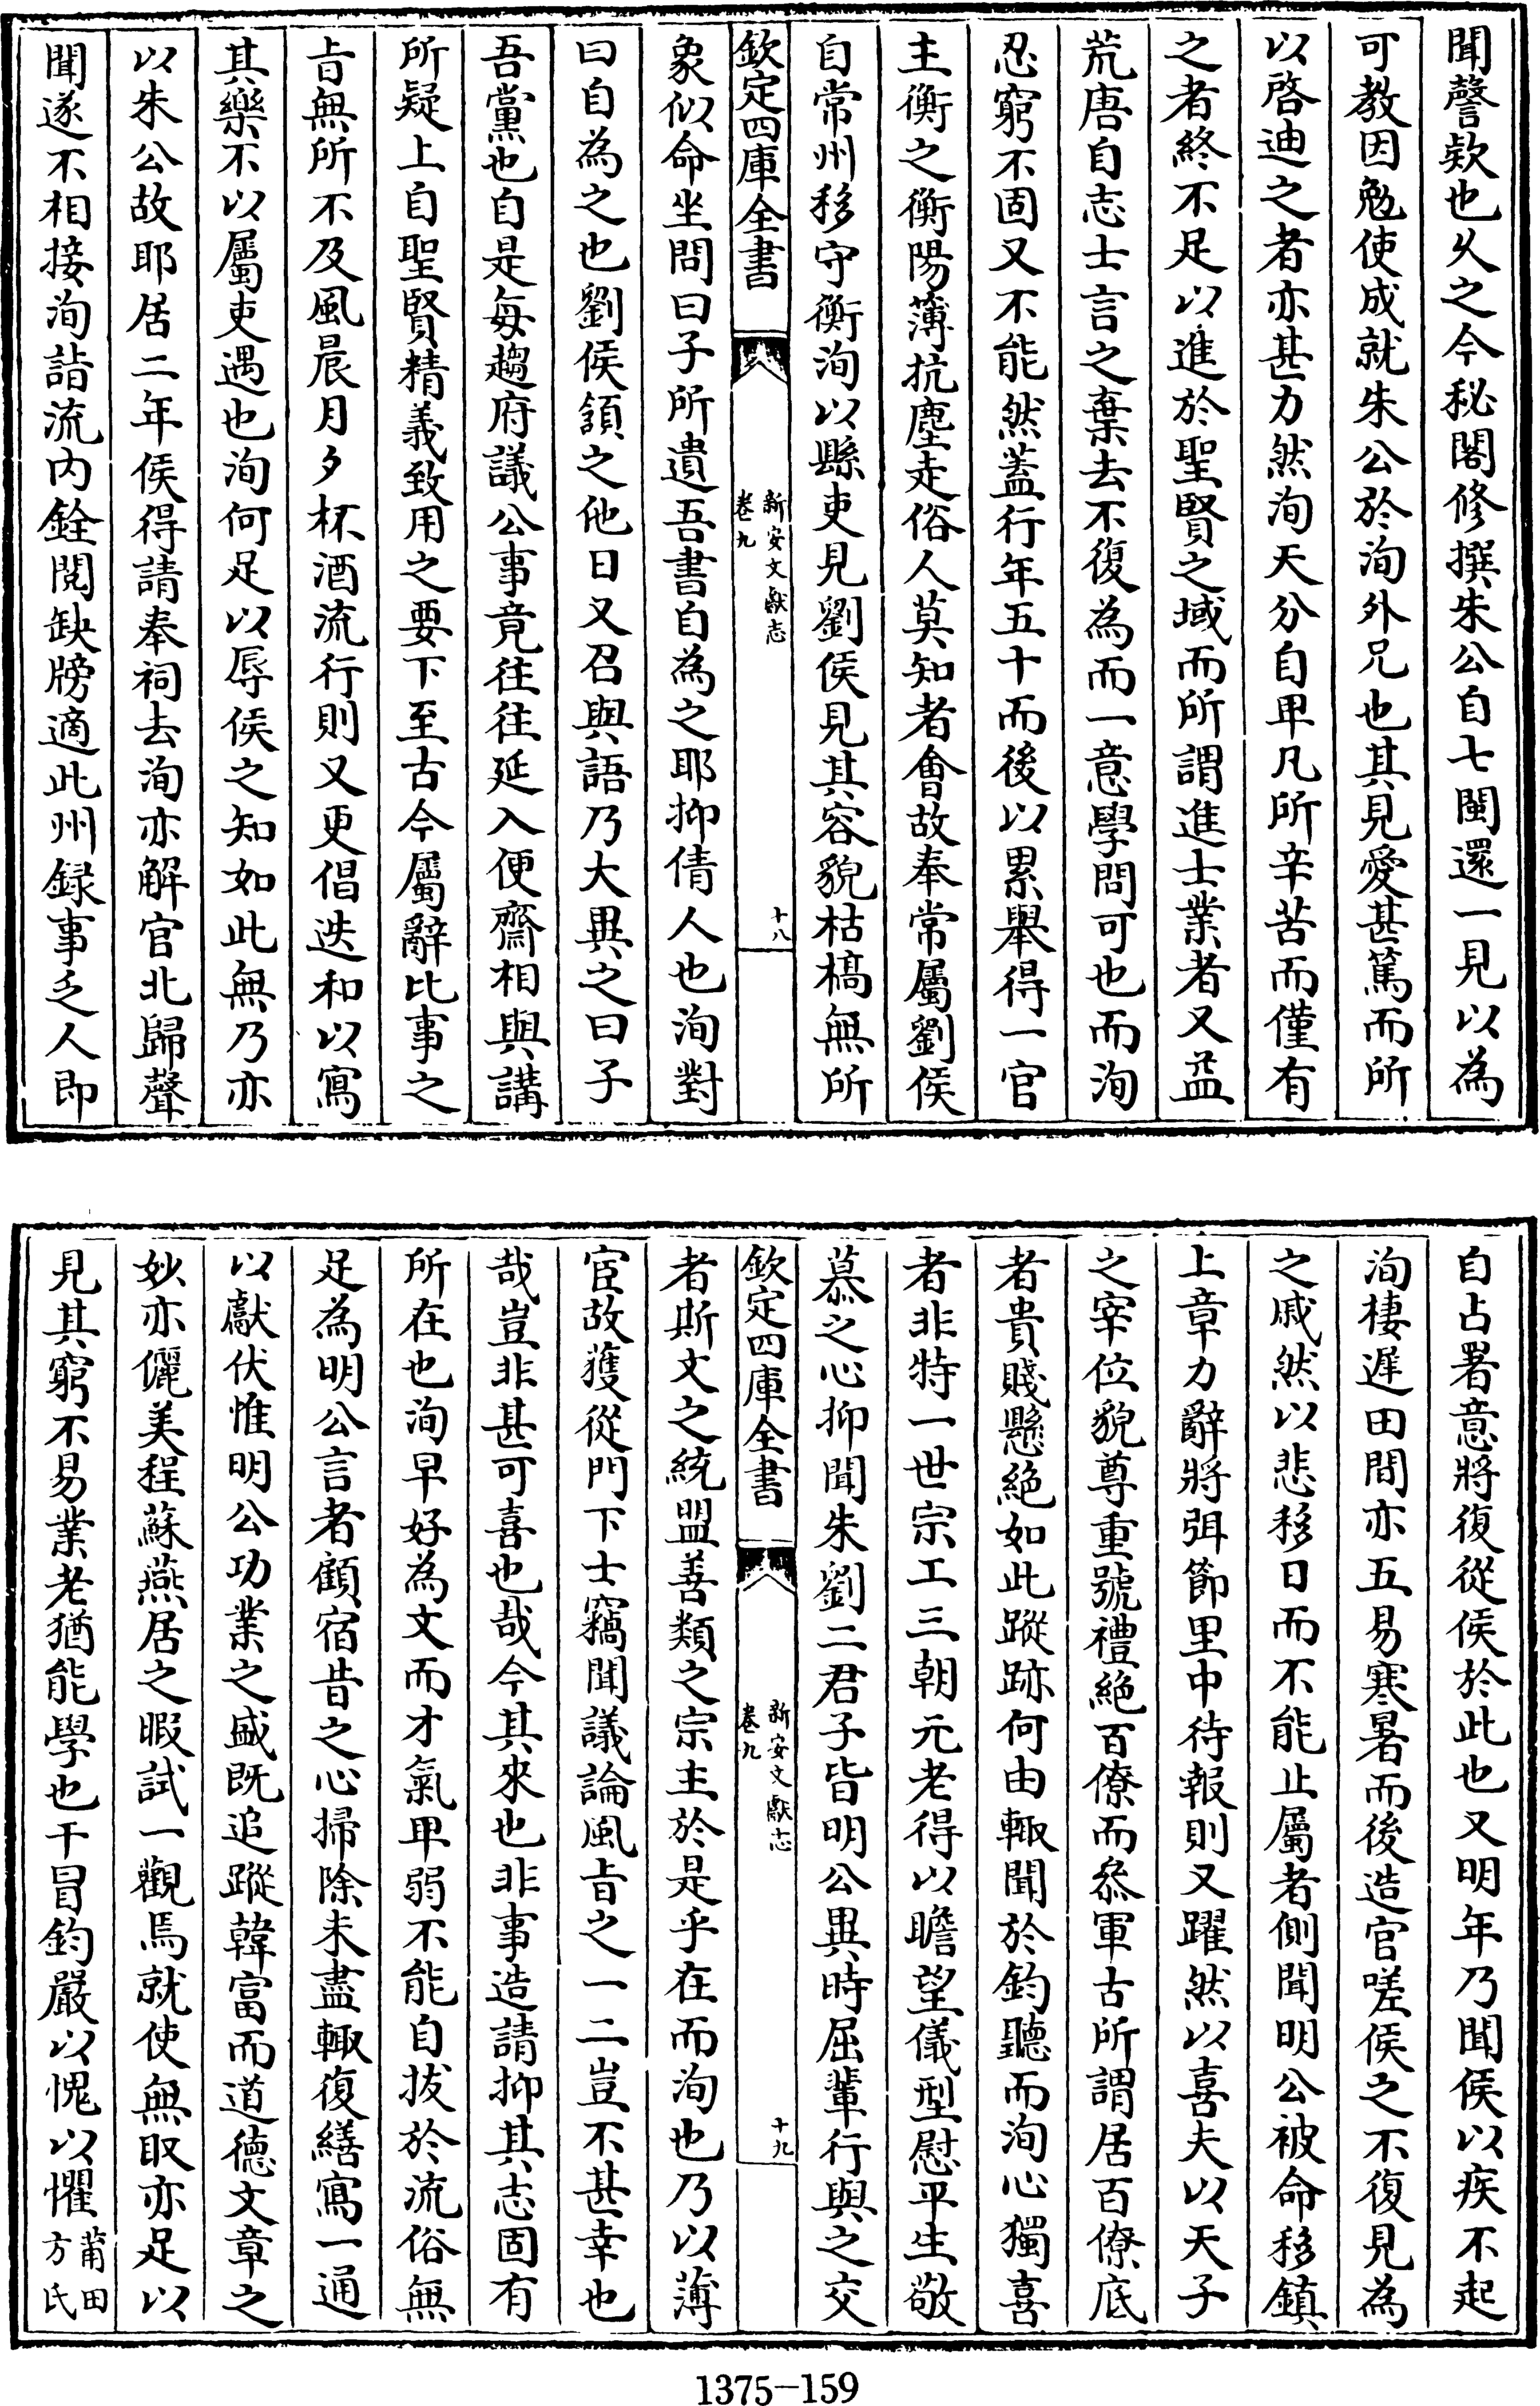 聞謦欬也乆之今秘閣修撰朱公自七閩還一見以為
可教因勉使成就朱公於洵外兄也其見愛甚篤而所
以啓迪之者亦甚力然洵天分自甲凡所辛苦而僅有
之者終不足以進於聖賢之域而所謂進士業者又益
荒唐自志士言之棄去不復為而一意學問可也而洵
忍窮不固又不能然蓋行年五十而後以累舉得一官
主衡之衡陽簿抗塵走俗人莫知者會故奉常屬劉侯
自常州移守衡洵以縣吏見劉侯見其容貌枯槁無所
欽定四庫全書 新安文獻志 卷九 十八
象似命坐問曰子所遺吾書自為之耶抑倩人也洵對
曰自為之也劉侯頷之他日又召與語乃大異之曰子
吾黨也自是每趨府議公事竟往往延入便齋相與講
所疑上自聖賢精義致用之要下至古今屬辭比事之
㫖無所不及風晨月夕杯酒流行則又更倡迭和以寫
其樂不以屬吏遇也洵何足以辱侯之知如此無乃亦
以朱公故耶居二年侯得請奉祠去洵亦解官北歸聲
聞遂不相接洵詣流内銓閱缺牓適此州録事乏人即
自占署意將復從侯於此也又明年乃聞侯以疾不起
洵棲遲田間亦五易寒暑而後造官嗟侯之不復見為
之戚然以悲移日而不能止屬者側聞明公被命移鎮
上章力辭將弭節里中待報則又躍然以喜夫以天子
之宰位貌尊重號禮絶百僚而叅軍古所謂居百僚底
者貴賤懸絶如此蹤跡何由輙聞於鈞聽而洵心獨喜
者非特一世宗工三朝元老得以瞻望儀型慰平生敬
慕之心抑聞朱劉二君子皆明公異時屈輩行與之交
欽定四庫全書 新安文獻志 卷九 十九
者斯文之統盟善類之宗主於是乎在而洵也乃以薄
宦故獲從門下士竊聞議論風㫖之一二豈不甚幸也
哉豈非甚可喜也哉今其來也非事造請抑其志固有
所在也洵早好為文而才氣甲弱不能自拔於流俗無
足為明公言者顧宿昔之心掃除未盡輙復繕寫一通
以獻伏惟明公功業之盛既追蹤韓富而道德文章之
妙亦儷美程蘇燕居之暇試一觀焉就使無取亦足以
見其窮不易業老猶能學也干冒鈞嚴以愧以懼 莆田方氏
1375-159